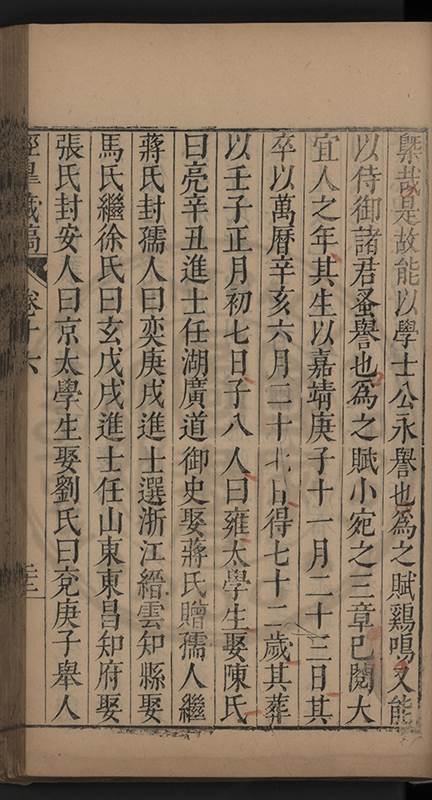 槩哉是故能以學士公永譽也為之賦鷄鳴又能
以侍御諸君蚤譽也為之賦小宛之三章已閱大
宜人之年其生以嘉靖庚子十一月二十三日其
卒以萬曆辛亥六月二十七日得七十二歲其葬
以壬子正月初七日子八人曰雍太學生娶陳氏
曰亮辛丑進士任湖廣道御史娶蔣氏贈孺人繼
蔣氏封孺人曰奕庚戌進士選浙江縉雲知縣娶
馬氏繼徐氏曰玄戊戌進士任山東東昌知府娶
張氏封安人曰京太學生娶劉氏曰兖庚子舉人
藏稿 卷十六 三十二